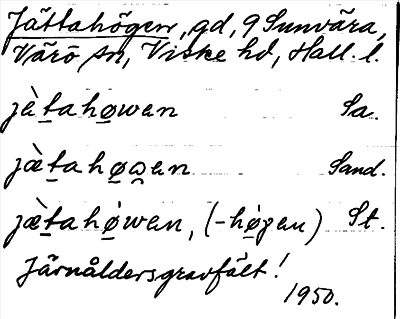 Jättahögen, gd, 9 Sunvära,
Värö sn, Viske hd, Hall. l.
jæ̀t̲ahø̲wan Sa.
jæt̲ahø̲ω̯an Sand.
jæ̀t̲ahǿ̲wan, (-hǿ̲gan) St.
Järnåldersgravfält!
1950.